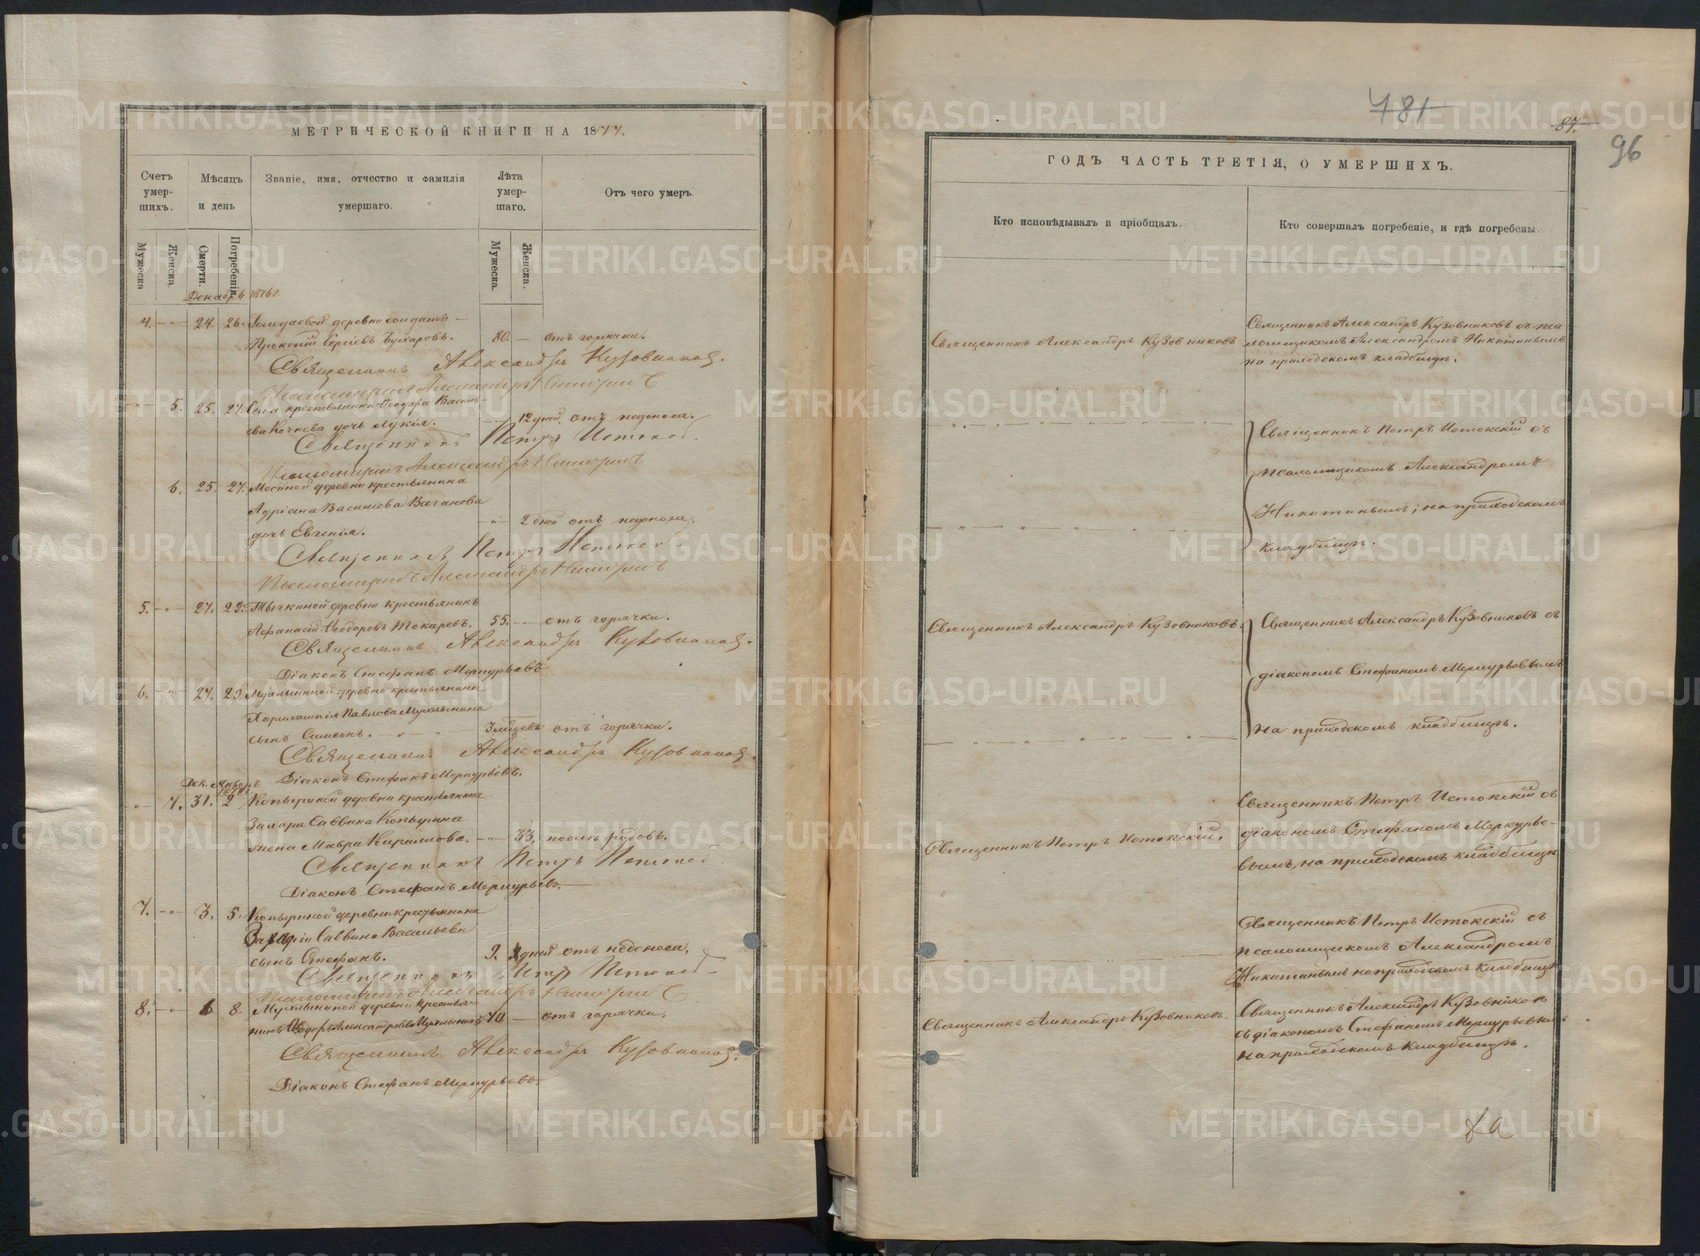 МЕТРИЧЕСКОЙ КНИГИ НА 1877.
Счетъ умер-шихъ.
Мѣсяцъ и день
Званіе, имя, отчество и фамилія умершаго.
Лѣта умер-шаго.
Отъ чего умеръ.
Мужеска
Женска
Смерти.
Погребенія
Мужеска.
Женска.
Декабрь 1876 г.
4. 24. 26. деревни солдатъ
Прокопій Сергѣевъ 80. отъ горячки.
Священникъ Александръ Кузовниковъ.
Псаломщикъ Александръ Никитинъ
5. 25. 27. Села крестьянина Ѳеодора Василь-
ева Кочнева дочь Лукія. 12 дней отъ недоноса.
Священникъ Петръ Истокскій
Псаломщикъ Александръ Никитинъ
6. 25. 27. Мостовой деревни крестьянина
Адріана Васильева Ваганова
дочь Евгенія. 2 дней отъ недоноса.
Священникъ Петръ Истокскій
Псаломщикъ Александръ Никитинъ
5. 27. 29. деревни крестьянинъ
Афанасій Ѳеодоровъ Токаревъ. 55. отъ горячки.
Священникъ Александръ Кузовниковъ.
Діаконъ Стефанъ Меркурьевъ
6. 27. 29. деревни крестьянина
Харлампія Павлова
сынъ Симеонъ. отъ горячки.
Священникъ Александръ Кузовниковъ.
Діаконъ Стефанъ Меркурьевъ.
Дек. Январь
7. 31. 2 Копыриной деревни крестьянина
Захара Саввина Копырина
жена Мавра Кириллова. 33. послѣ родовъ.
Священникъ Петръ Истокскій
Діаконъ Стефанъ Меркурьевъ.
7. 3. 5. Копыриной деревни крестьянина
Саввина Васильева
сынъ Стефанъ. дней отъ недоноса.
Священникъ Петръ Истокскій
Псаломщикъ Александръ Никитинъ
8. 6 8. деревни крестья-
нинъ Ѳедоръ Александровъ 70 отъ горячки.
Священникъ Александръ Кузовниковъ.
Діаконъ Стефанъ Меркурьевъ.
481
87.
96
ГОДЪ ЧАСТЬ ТРЕТІЯ, О УМЕРШИХЪ.
Кто исповѣдывалъ и пріобщалъ.
Кто совершалъ погребеніе, и гдѣ погребены.
Священникъ Александръ Кузовниковъ
Священникъ Александръ Кузовниковъ съ пса
ломщикомъ Александромъ Никитинымъ
на приходскомъ кладбищѣ.
Священникъ Петръ Истокскій съ
псаломщикомъ Александромъ
Никитинымъ, на приходскомъ
кладбищѣ.
Священникъ Александръ Кузовниковъ.
Священникъ Александръ Кузовниковъ съ
діакономъ Стефаномъ Меркурьевымъ
на приходскомъ кладбищѣ.
Священникъ Петръ Истокскій.
Священникъ Петръ Истокскій съ
діакономъ Стефаномъ Меркурье-
вымъ, на приходскомъ кладбищѣ
Священникъ Петръ Истокскій съ
псаломщикомъ Александромъ
Никитинымъ на приходскомъ кладбищѣ
Священникъ Александръ Кузовниковъ.
Священникъ Александръ Кузовниковъ
съ діакономъ Стефаномъ Меркурьевымъ
на приходскомъ кладбищѣ.
METRIKI.GASO-URAL.RU